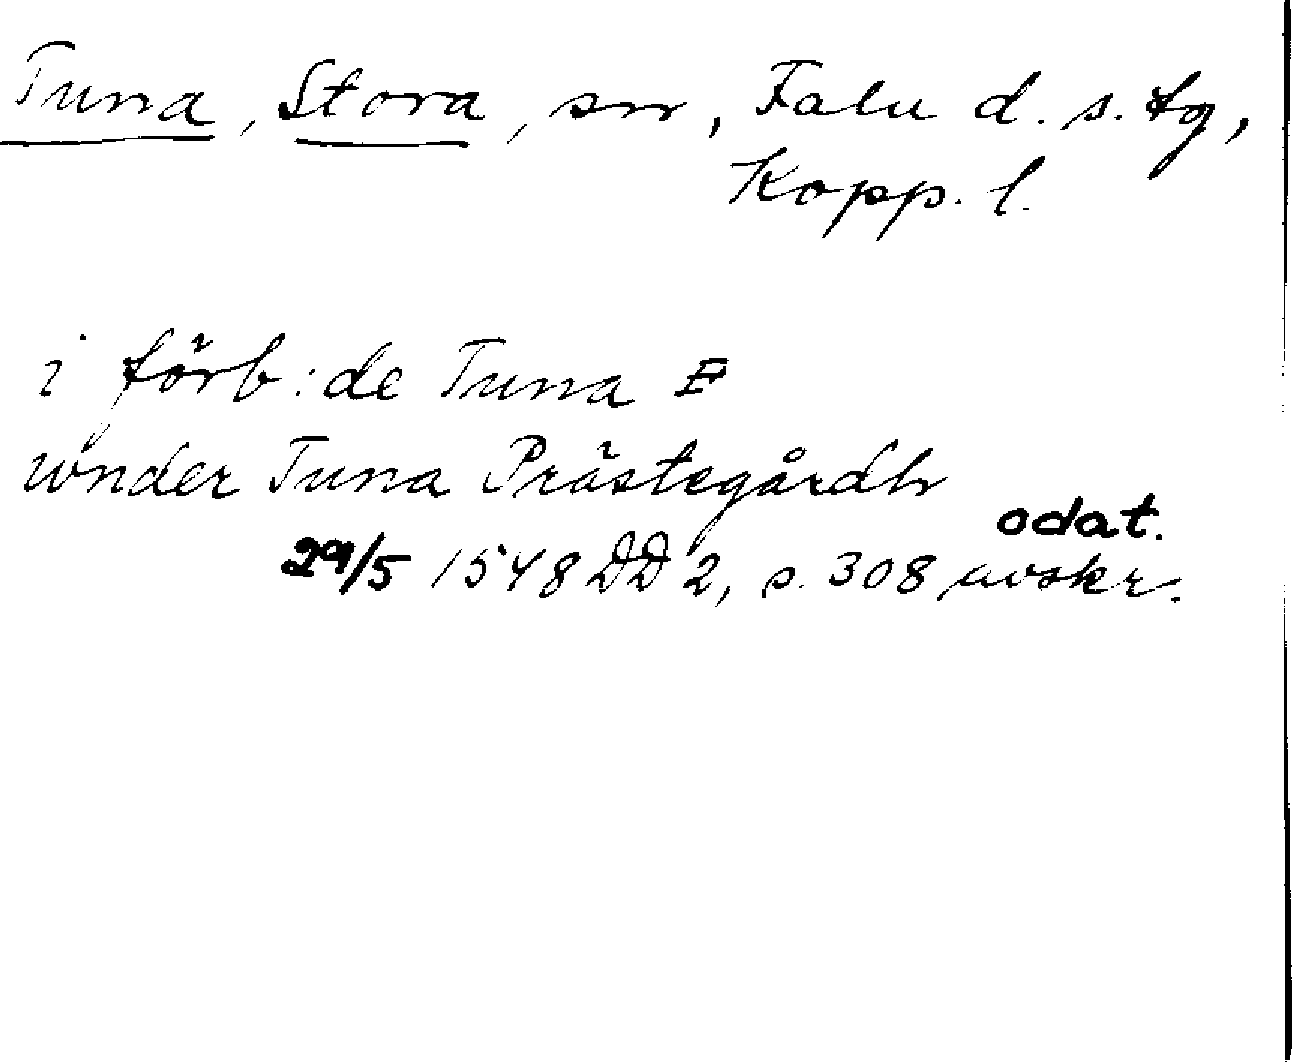 Tuna, Stora, sn, Falu d. s. tg,
Kopp. l.
i förb: de Tuna E
wnder Tuna Prästegårdh
odat.
29/5 1548 DD 2, s. 308 avskr.